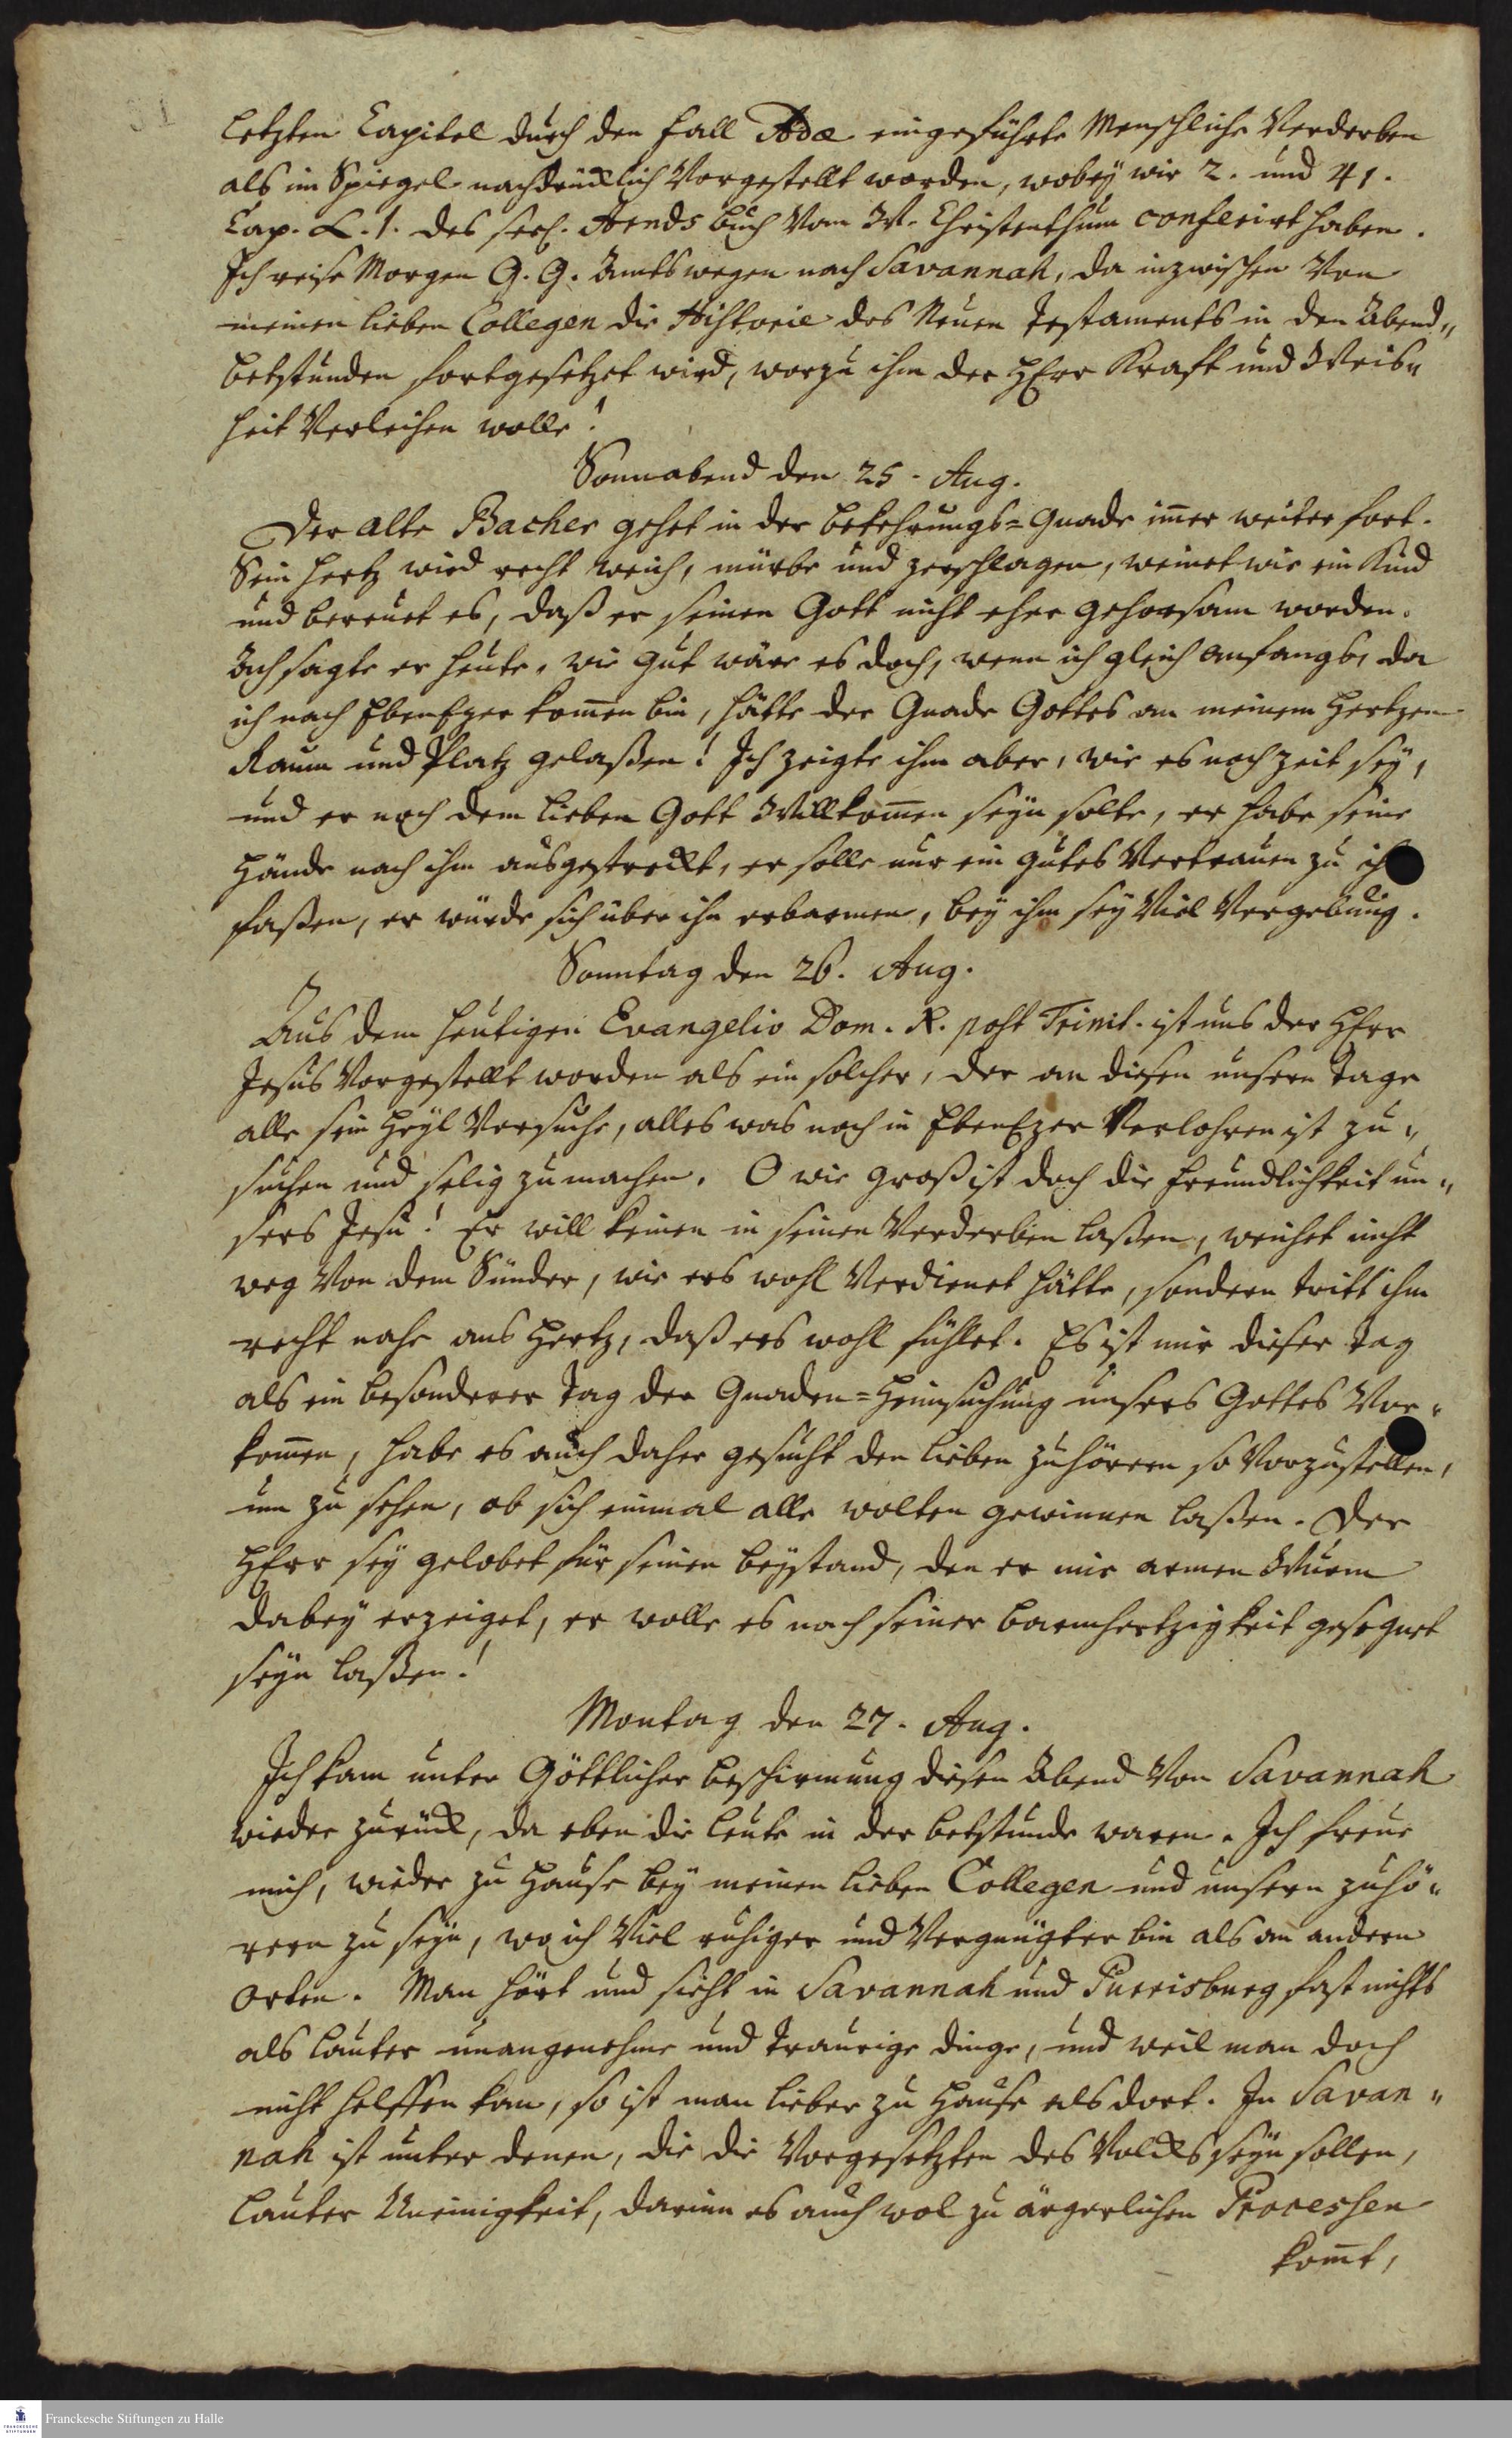 letzten Capitel durch den Fall Adæ eingeführte Menschliche Verderben
als im Spiegel nachdrücklich Vorgestellt worden, wobey wir 2. und 41.
Cap. L. 1. des seel. Arnds Buch Vom W. Christenthum conferirt haben.
Ich reise Morgen G. G. Amts wegen nach Savannah, da inzwischen Von
meinen lieben Collegen die Historie des Neuen Testaments in den Abend„
betstunden fortgesetzet wird, worzu ihm der HErr Kraft und Weis„
heit Verleihen wolle!
Sonnabend den 25. Aug.
Der alte Bacher gehet in der Bekehrungs=Gnade im̄er weiter fort.
Sein Hertz wird recht weich, mürbe und zerschlagen, weinet wie ein Kind
und bereuet es, daß er seinen Gott nicht eher gehorsam worden.
Ach sagte er heute, wie gut wäre es doch, wenn ich gleich anfangs, da
ich nach EbenEzer kom̄en bin, hätte der Gnade Gottes an meinem Hertzen
Raum und Platz gelaßen! Ich zeigte ihm aber, wie es noch Zeit sey,
und er noch dem lieben Gott Willkom̄en seyn solte, er habe seine
Hände nach ihm ausgestreckt, er solle nur ein gutes Vertrauen zu ih
faßen, er würde sich über ihn erbarmen, bey ihm sey Viel Vergebung.
Sonntag den 26. Aug.
Aus dem heutigen Evangelio Dom. X. post Trinit. ist uns der HErr
Jesus Vorgestellt worden als ein solcher, der an diesen unsern Tage
alle sein Heyl Versuche, alles was noch in EbenEzer Verlohren ist zu„
suchen und selig zu machen. O wie groß ist doch die Freundlichkeit un„
sers Jesu! Er will keinen in seinen Verderben laßen, weichet nicht
weg Von dem Sünder, wie ers wohl Verdienet hätte, sondern tritt ihm
recht nahe ans Hertz, daß ers wohl fühlet. Es ist mir dieser Tag
als ein besonderer Tag der Gnaden=Heimsuchung unsers Gottes Vor„
kom̄en, habe es auch daher gesucht den lieben Zuhörern so Vorzustellen,
um zu sehen, ob sich einmal alle wolten gewinnen laßen. Der
HErr sey gelobet für seinen Beystand, den er mir armen Wurm
dabey erzeiget, er wolle es nach seiner Barmhertzigkeit gesegnet
seyn laßen!
Montag den 27. Aug.
Ich kam unter Göttlicher Beschirmung diesen Abend Von Savannah
wieder zurück, da eben die Leute in der Betstunde waren. Ich freue
mich, wieder zu Hause bey meinen lieben Collegen und unsern Zuhö„
rern zu seyn, wo ich Viel ruhiger und Vergnügter bin als an andern
Orten. Man hört und sieht in Savannah und Purrisburg fast nichts
als lauter unangenehme und traurige Dinge, und weil man doch
nicht helffen kan, so ist man lieber zu Hause als dort. In Savan„
nah ist unter denen, die die Vorgesetzten des Volcks seyn sollen,
lauter Uneinigkeit, darinn es auch wol zu ärgerlichen Processen
kom̄t,
Franckesche Stiftungen zu Halle